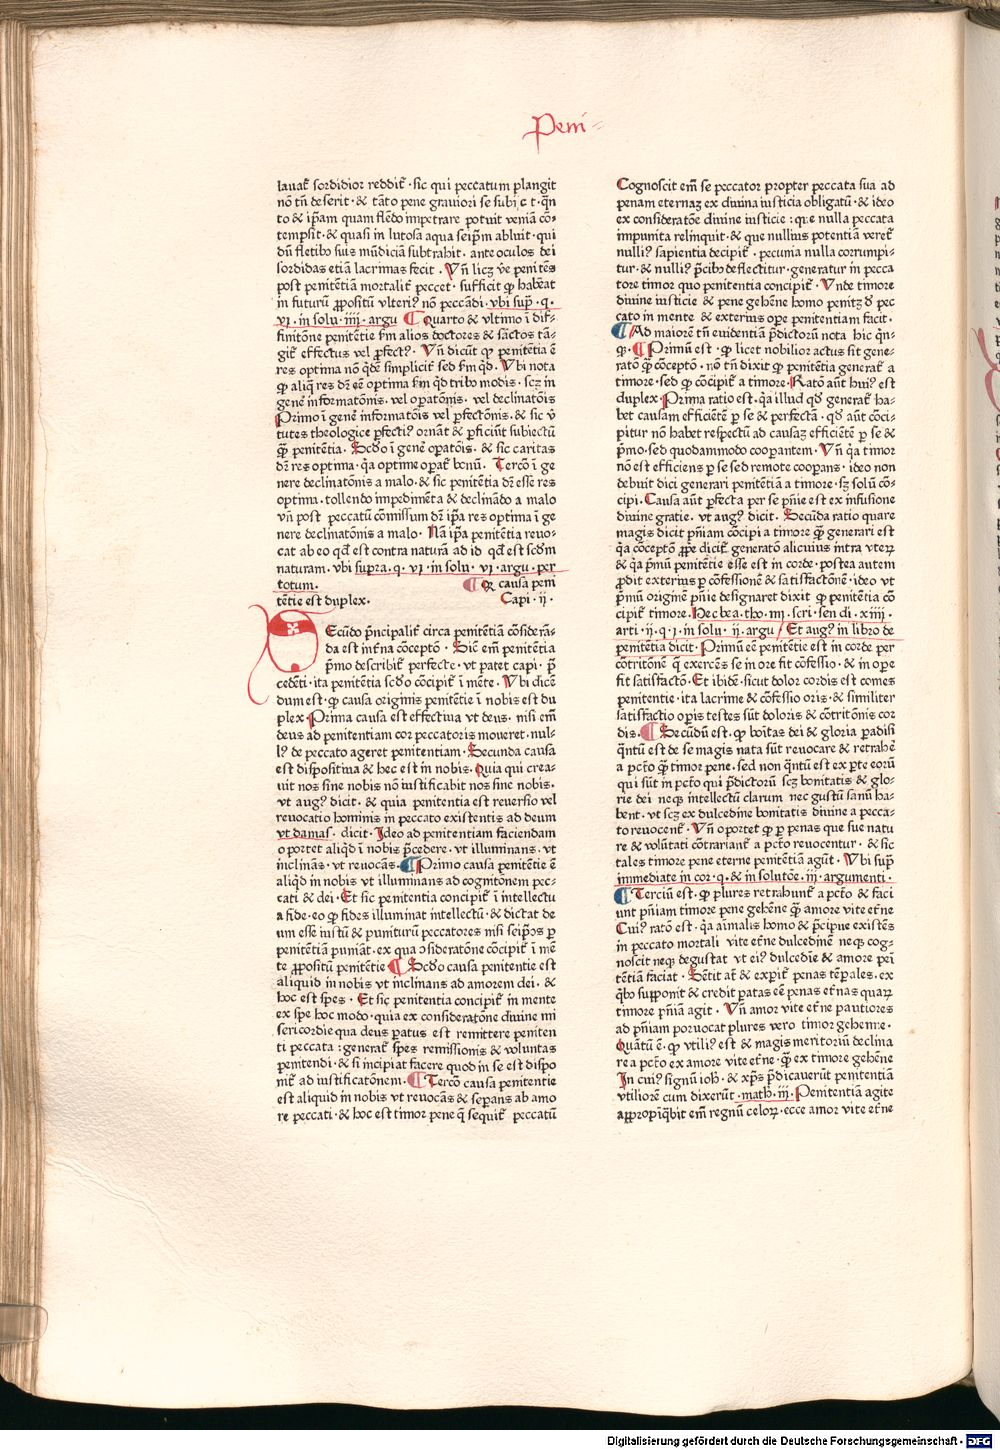 Peni⸗
lauat᷑ sordidior reddit᷑ · sic qui peccatum plangit
nō tn̄ deserit · & tāto pene grauiori se subijcit · qn̄
to & ip̄am quam flēdo impetrare potuit veniā cō⸗
tempsit · & quasi in lutosa aqua seip̄m abluit · qui
dū fletibꝰ suis mūdiciā subtrahit · ante oculos dei
sordidas etiā lacrimas fecit · Vn̄ licꝫ v̄e penitēs
post penitētiā mortalit᷑ peccet · sufficit ꝙ habēat
in futurū ꝓpositū vlteriꝰ nō peccādi · vbi sup̄ · q ·
vj · in solu · iiij · argu ¶ Quarto & vltimo ī dif⸗
finitōne penitētie ẜm alios doctores & sāctos tā⸗
git᷑ effectus vel ꝓfectꝰ · Vn̄ dicūt ꝙ penitētia ē
res optima nō q̄dē simplicit᷑ sed ẜm qd · Vbi nota
ꝙ aliq̄ res dr̄ eē optima ẜm qd tribꝰ modis · scꝫ in
genē informatōnis · vel oꝑatōnis · vel declinatōis
Primo ī genē informatōīs vel ꝑfectōnis · & sic v̄
tutes theologice ꝑfectiꝰ ornāt & ꝑficiūt subiectū
q̄ꝫ penitētia · Scd̄o ī genē oꝑatōīs · & sic caritas
dr̄ res optima · q̇a optime oꝑat᷑ bonū · Tercō ī ge
nere declinatōnis a malo · & sic penitētia dr̄ esse res
optima · tollendo impedimēta & declināo a malo
vn̄ post peccatū cōmissum dr̄ ip̄a res optima ī ge
nere declinatōnis a malo · Nā ip̄a penitētia reuo⸗
cat ab eo qd̄ est contra naturā ad id qd̄ est scd̄m
naturam · vbi supra · q · vj · in solu · vj · argu · per
totum · ¶ Ꝙ causa peni
tētie est duplex · Capi · ij ·
SEcūdo p̄ncipalit᷑ circa penitētiā cōsiderā⸗
da est int̄na cōceptō · Sic em̄ penitētia
p̄mo describit᷑ perfecte · vt patet capi · p̄
cedēti · ita penitētia scd̄o cōcipit᷑ ī mēte · Vbi dicē
dum est · ꝙ causa originis penitētie ī nobis est du
plex · Prima causa est effectiua vt deus · nisi em̄
deus ad penitentiam cor peccatoris moueret · nul⸗
lꝰ de peccato ageret penitentiam · Secunda causa
est dispositiua & hec est in nobis · Quia qui crea⸗
uit nos sine nobis nō iustificabit nos sine nobis ·
vt augꝰ dicit · & quia penitentia est reuersio vel
reuocatio hominis in peccato existentis ad deum
vt damas · dicit · Ideo ad penitentiam faciendam
oportet aliq̇d ī nobis p̄cedere · vt illuminans · vt
inclināns · vt reuocās · ¶ Primo causa penitētie ē
aliq̇d in nobis vt illuminans ad cognitōnem pec⸗
cati & dei · Et sic penitentia concipit᷑ ī intellectu
a fide · eo ꝙ fides illuminat intellectū · & dictat de
um esse iustū & puniturū peccatores nisi seip̄os ꝑ
penitētiā puniāt · ex qua ↄsideratōne cōcipit᷑ ī mē
te ꝓpositū penitētie ¶ Scd̄o causa penitentie est
aliquid in nobis vt inclinans ad amorem dei · &
hoc est spes · Et sic penitentia concipit᷑ in mente
ex spe hoc modo · quia ex consideratōne diuine mi
sericordie qua deus paratus est remittere peniten
ti peccata : generat᷑ spes remissionis & voluntas
penitendi · & si incipiat facere quod in se est dispo
nit᷑ ad iustificatōnem · ¶ Tercō causa penitentie
est aliquid in nobis vt reuocās & sepans ab amo
re peccati · & hoc est timor pene q̇ sequit᷑ peccatū
Cognoscit em̄ se peccator propter peccata sua ad
penam eternaꝫ ex diuina iusticia obligatū · & ideo
ex consideratōe diuine iusticie : que nulla peccata
impunita relinquit · & que nullius potentiā veret᷑
nulliꝰ sapientia decipit᷑ · pecunia nulla corrumpi⸗
tur · & nulliꝰ p̄cibꝰ deflectitur · generatur in pecca
tore timor quo penitentia concipit᷑ · Vnde timore
diuine iusticie & pene gehēne homo penitꝫ d̄ pec
cato in mente & exterius oꝑe penitentiam facit ·
¶ Ad maiorē tn̄ euidentiā p̄dictorū nota hic q̇n⸗
ꝙ · ¶ Primū est · ꝙ licet nobilior actus sit gene⸗
ratō q̄ꝫ cōceptō · nō tn̄ dixit ꝙ penitētia generat᷑ a
timore · sed ꝙ cōcipit᷑ a timore · Ratō aūt huiꝰ est
duplex · Prima ratio est · q̇a illud qd̄ generat᷑ ha⸗
bet causam efficiētē ꝑ se & perfectā · qd̄ aūt cōci⸗
pitur nō habet respectū ad causaꝫ efficiētē ꝑ se &
p̄mo · sed quodammodo cooꝑantem · Vn̄ q̇a timor
nō est efficiens ꝑ se sed remote cooꝑans · ideo non
debuit dici generari penitētiā a timore · sꝫ solū cō⸗
cipi · Causa aūt ꝑfecta per se pn̄ie est ex infusione
diuine gratie · vt augꝰ dicit · Secūda ratio quare
magis dicit pn̄iam cōcipi a timore q̄ꝫ generari est
q̇a cōceptō ꝓpe dicit᷑ generatō alicuius intra vterꝫ
& q̇a p̄mū penitētie esse est in corde · postea autem
ꝓdit exterius ꝑ cōfessionē & satisfactōnē · ideo vt
p̄mū originē pn̄ie designaret dixit ꝙ penitētia cō
cipit᷑ timore · Hec bea · tho · in · scri · sen di · xiiij ·
arti · ij · q · j · in solu · ij · argu / Et augꝰ in libro de
penitētia dicit · Primū eē penitētie est in corde per
cōtritōnē q̄ exercēs se in ore fit cōfessio · & in oꝑe
fit satisfactō · Et ibidē · sicut dolor cordis est comes
penitentie · ita lacrime & cōfessio oris · & similiter
satisfactio oꝑis testes sūt doloris & cōtritōnis cor
dis · ¶ Secūdū est · ꝙ boītas dei & gloria ꝑadisi
q̇ntū est de se magis nata sūt reuocare & retrahē
a pctō q̄ꝫ timor pene · sed non q̇ntū est ex ꝑte eorū
qui sūt in pctō qui p̄dictorū scꝫ bonitatis & glo⸗
rie dei neqꝫ intellectū clarum nec gustū sanū ha⸗
bent · vt scꝫ ex dulcedine bonitatis diuine a pecca⸗
to reuocent᷑ · Vn̄ oportet ꝙ ꝑ penas que sue natu
re & volūtati cōtrariant᷑ a pctō reuocentur · & sic
tales timore pene eterne penitētiā agūt · Vbi sup̄
immediate in cor · q · & in solutōe · iij · argumenti ·
¶ Terciū est · ꝙ plures retrahunt᷑ a pctō & faci
unt pn̄iam timore pene gehēne q̄ꝫ amore vite et̄ne
Cuiꝰ ratō est · q̇a aīmalis homo & p̄cipue existēs
in peccato mortali vite et̄ne dulcedinē neqꝫ cog⸗
noscit neqꝫ degustat vt eiꝰ dulcedīe & amore pei
tētiā faciat · Sētit at̄ & expit᷑ penas tēꝑales · ex
q̇bꝰ supponit & credit ꝑatas eē penas et̄nas quaꝝ
timore pn̄iā agit · Vn̄ amor vite et̄ne pautiores
ad pn̄iam poruocat plures vero timor gehenne ·
Quātū ē · ꝙ vtiliꝰ est & magis meritoriū declina
re a pctō ex amore vite et̄ne · q̄ꝫ ex timore gehēne
In cuiꝰ signū ioh̄ · & xp̄s p̄dicauerūt penitentiā
vtiliorē cum dixerūt · math̄ · iij · Penitentiā agite
aꝓpropīq̇bit em̄ regnū celoꝝ · ecce amor vite et̄ne
Digitalisierung gefördert durch die Deutsche Forschungsgemeinschaft - DFG